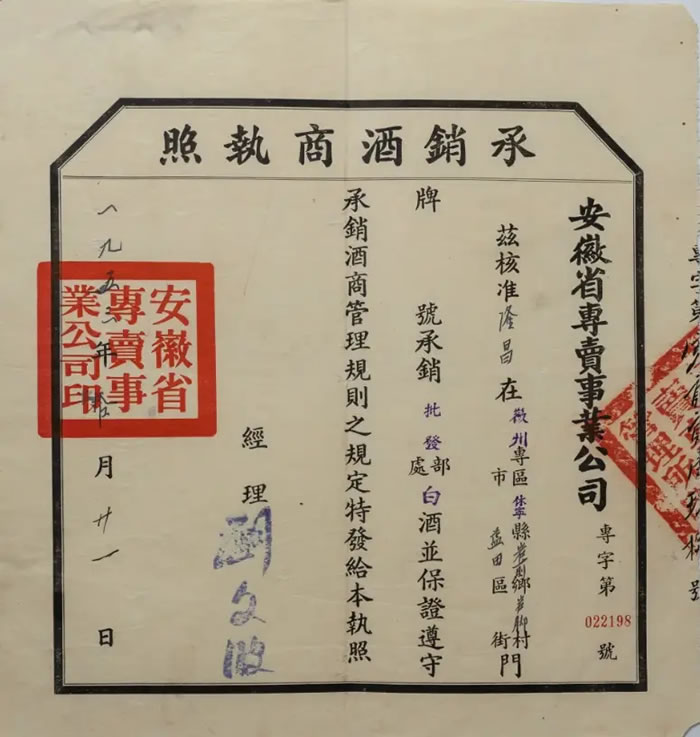 承銷酒商執照
安徽省專賣事業公司
專字第022198號
茲核准隆昌在徽州專區休寧縣鄉村
市盍田區街門
牌號承銷批發部白酒並保證遵守
處
承銷酒商管理規則之規定特發給本執照
經理
劉文波
一九五二年拾月廿一日
安徽省
專賣事
業公司印